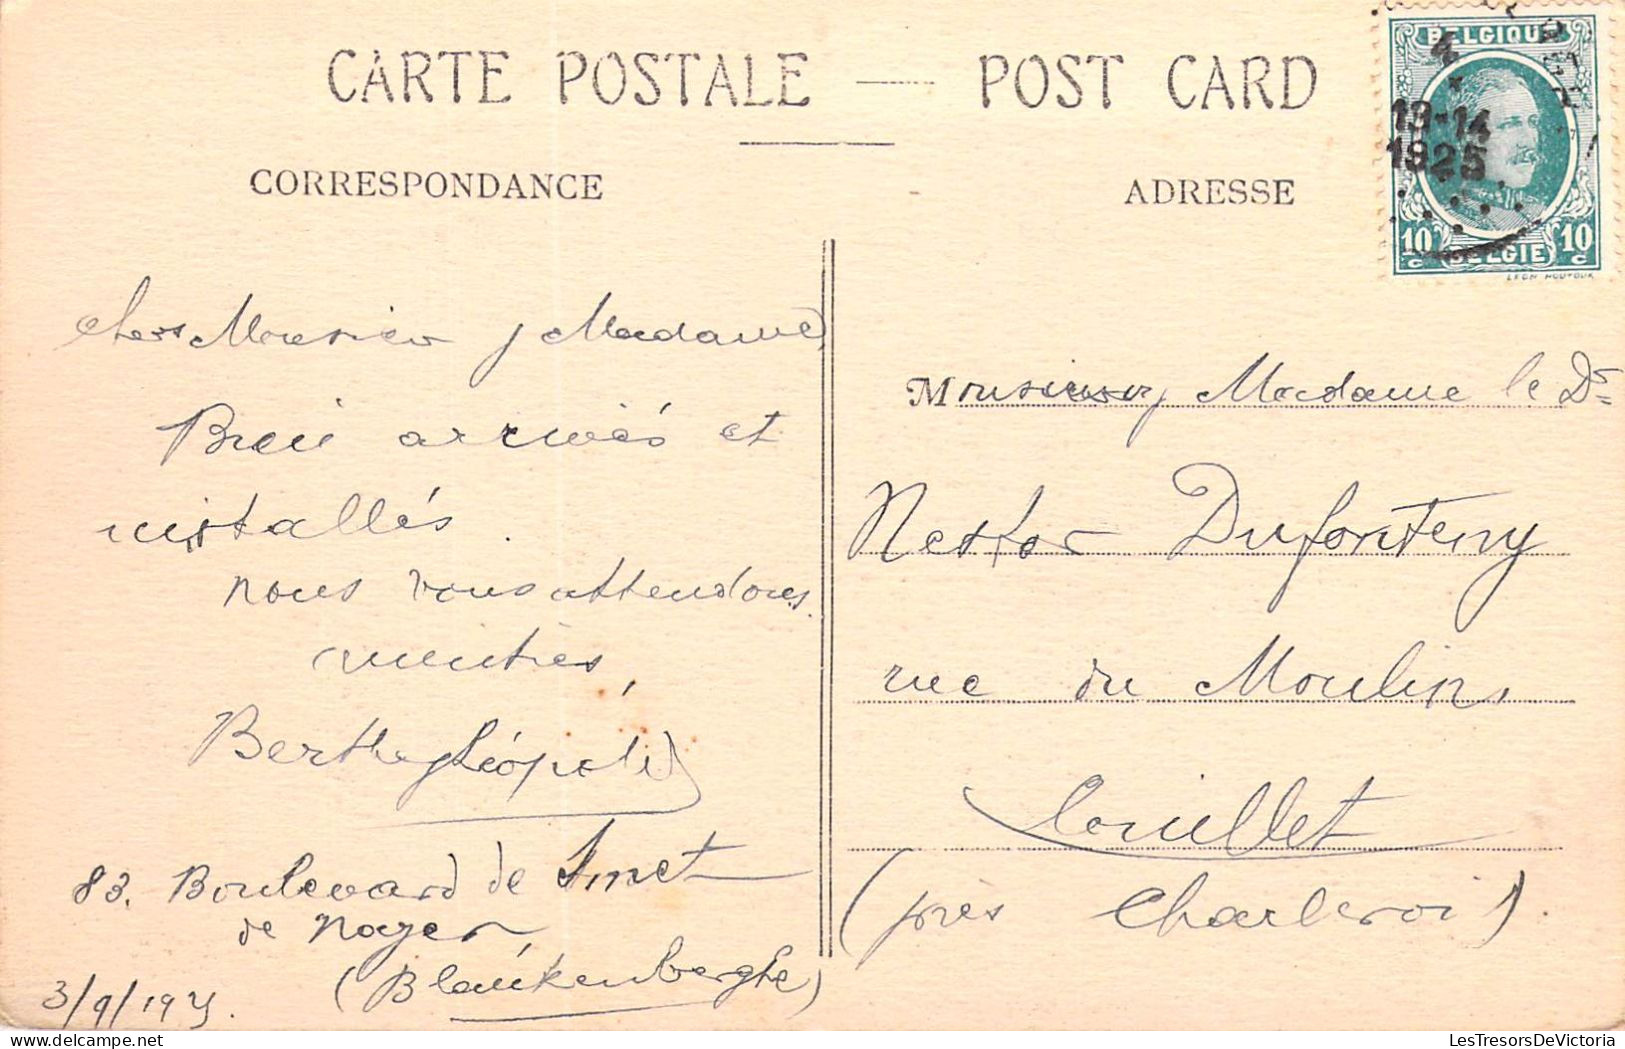 CARTE POSTALE — POST CARD
CORRESPONDANCE
ADRESSE
BELGIQUE
4
13-14
1925
10 c BELGIE 10 c
LEON HOUYOUX
Chers Monsieur, Madame,
Bien arrivés et
installés.
nous vous attendons.
Amitiés,
Berthe, Léopold
83. Boulevard de Smet
de Nayer
(Blankenberghe)
3/9/1925.
Monsieur, Madame le Dr
Nestor Dufonteny
rue du Moulin,
Couillet
(près Charleroi).
LesTresorsDeVictoria